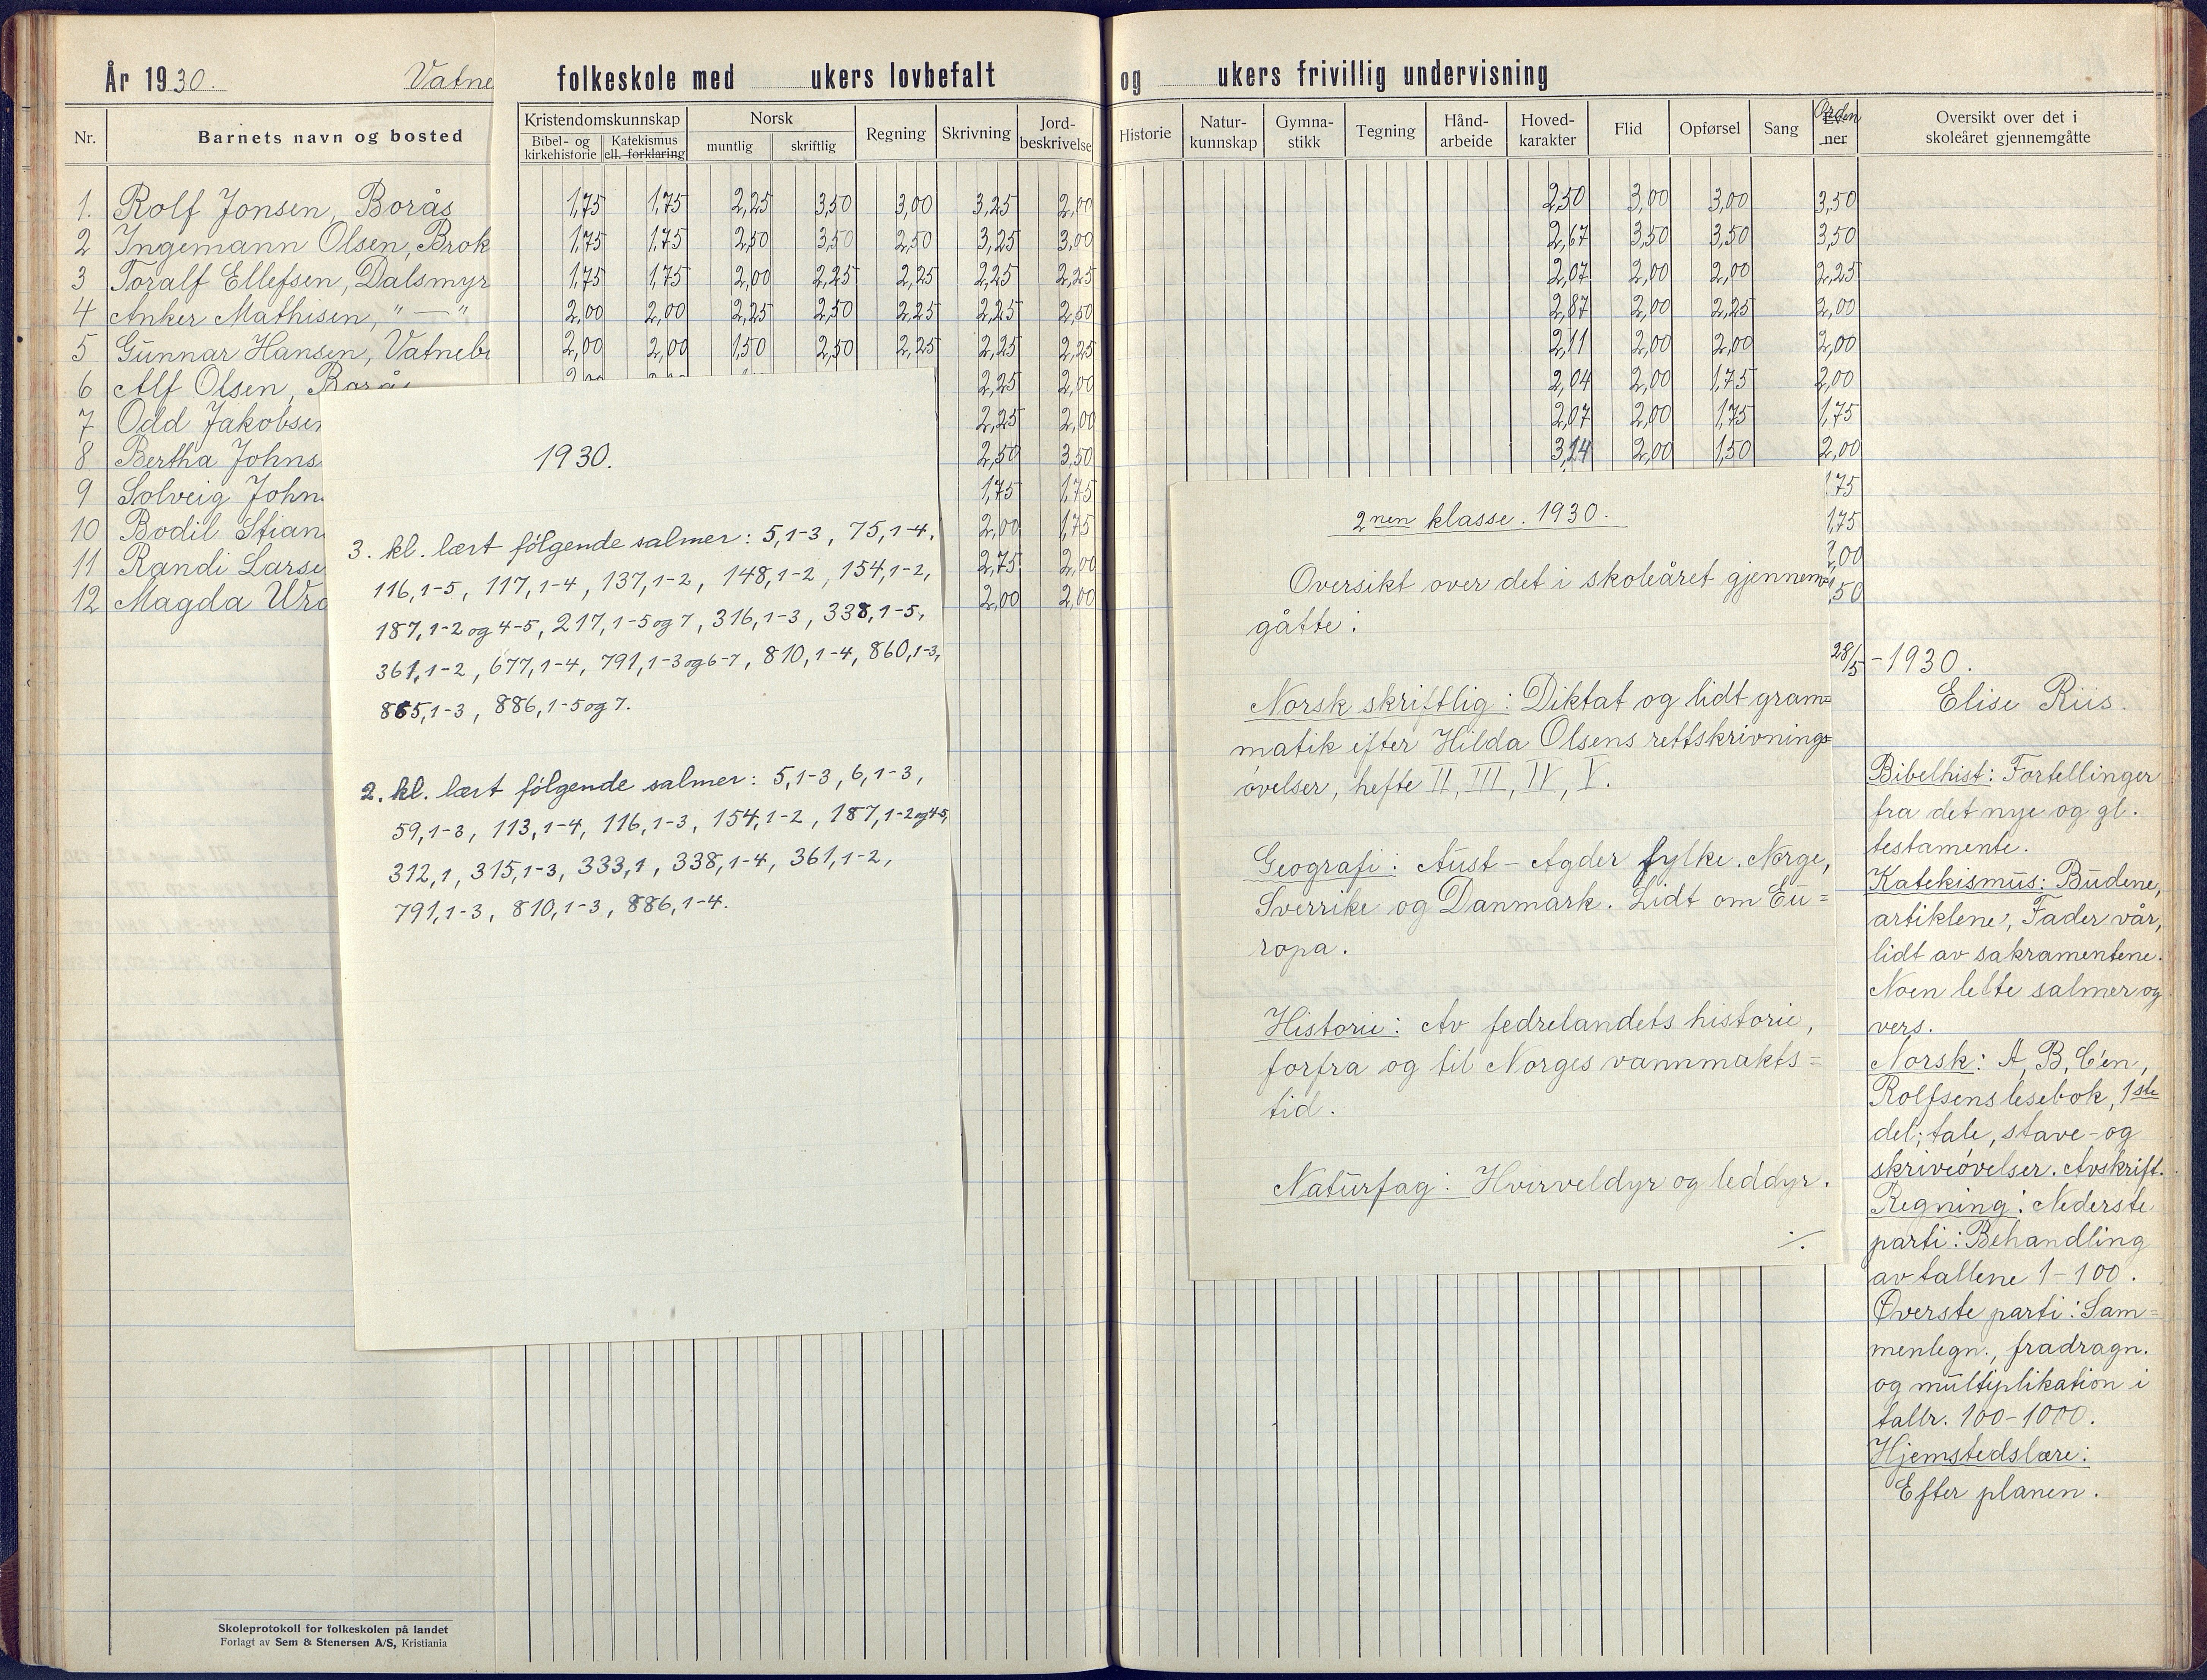 År 1930. Vatne folkeskole med ukers lovbefalt og ukers frivillig undervisning
Nr. Barnets navn og bosted Kristendomskunnskap Bibel- og kirkehistorie Katekismus ell. forklaring Norsk muntlig skriftlig Regning Skrivning Jord-beskrivelse Historie Natur-kunnskap Gymna-stikk Tegning Hånd-arbeide Hoved-karakter Flid Opførsel Sang Orden Ev-ner Oversikt over det i skoleåret gjennemgåtte
1. Rolf Jonsen, Borås 1,75 1,75 2,25 3,50 3,00 3,25 2,00 2,50 3,00 3,00 3,50
2 Ingemann Olsen, Brok 1,75 1,75 2,50 3,50 2,50 3,25 3,00 2,67 3,50 3,50 3,50
3 Toralf Ellefsen, Dalsmyr 1,75 1,75 2,00 2,25 2,25 2,25 2,25 2,07 2,00 2,00 2,25
4 Anker Mathisen, " — " 2,00 2,00 2,25 2,50 2,25 2,25 2,50 2,87 2,00 2,25 2,00
5 Gunnar Hansen, Vatnebr 2,00 2,00 1,50 2,50 2,25 2,25 2,25 2,11 2,00 2,00 2,00
6 Alf Olsen, Borås 2,25 2,00 2,04 2,00 1,75 2,00
7 Odd Jakobsen 2,25 2,00 2,07 2,00 1,75 1,75
8 Bertha Johns 2,50 3,50 3,14 2,00 1,50 2,00
9 Solveig John 1,75 1,75 1,75
10 Bodil Stian 2,00 1,75 1,75
11 Randi Larse 2,75 2,00 2,00
12 Magda 2,00 2,00 50
1930.
3. kl. lært følgende salmer: 5,1-3, 75,1-4,
116,1-5, 117,1-4, 137,1-2, 148,1-2, 154,1-2,
187,1-2 og 4-5, 217,1-5 og 7, 316,1-3, 338,1-5,
361,1-2, 677,1-4, 791,1-3 og 6-7, 810,1-4, 860,1-3,
865,1-3, 886,1-5 og 7.
2. kl. lært følgende salmer: 5,1-3, 6,1-3,
59,1-3, 113,1-4, 116,1-3, 154,1-2, 187,1-2 og 4-5,
312,1, 315,1-3, 333,1, 338,1-4, 361,1-2,
791,1-3, 810,1-3, 886,1-4.
2nen klasse. 1930.
Oversikt over det i skoleåret gjennem=
gåtte:
Norsk skriftlig: Diktat og lidt gram=
matik efter Hilda Olsens rettskrivnings=
øvelser, hefte II, III, IV, V.
Geografi: Aust-Agder fylke. Norge,
Sverrike og Danmark. Lidt om Eu=
ropa.
Historie: Av fedrelandets historie,
forfra og til Norges vannmakts=
tid.
Naturfag: Hvirveldyr og leddyr.
./.
28/5 - 1930.
Elise Riis.
Bibelhist: Fortellinger
fra det nye og gl.
testamente.
Katekismus: Budene,
artiklene, Fader vår,
lidt av sakramentene.
Noen lette salmer og
vers.
Norsk: A, B, C'en,
Rolfsens lesebok, 1ste
del; tale, stave- og
skriveøvelser. Avskrift.
Regning: Nederste
parti: Behandling
av tallene 1-100.
Øverste parti: Sam=
menlegn., fradragn.
og multiplikation i
tallr. 100-1000.
Hjemstedslære:
Efter planen.
Skoleprotokoll for folkeskolen på landet
Forlagt av Sem & Stenersen A/S, Kristiania